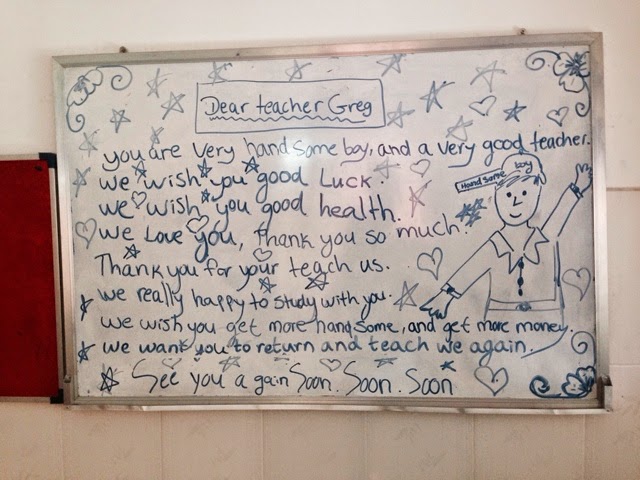 Dear teacher Greg
you are very handsome boy, and a very good teacher.
we wish you good Luck.
we wish you good health.
we Love you, thank you so much.
Thank you for your teach us.
we really happy to study with you.
we wish you get more handsome, and get more money.
we want you to return and teach we again.
See you again Soon. Soon. Soon
Handsome boy